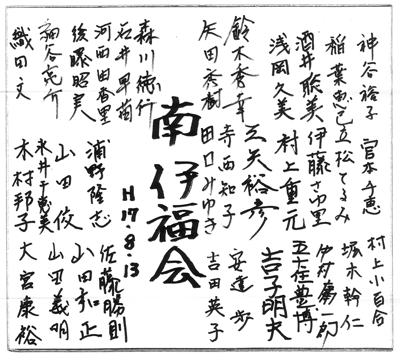 神谷裕子 宮本千恵 村上小百合
稲葉恵己 立松てるみ 堀木幹仁
酒井聡美 伊藤さゆ里
浅岡久美 村上重元 五十住豊博
三矢裕彦 吉子明夫
鈴木秀幸 寺西知子 安達歩
矢田秀樹 田口みゆき 吉田英子
南伊福会
H17.8.13
森川徳行
石井早苗 浦野隆志 佐藤勝則
河西由香里 山田俊 山田和正
後藤昭美 山田義明
福谷亮介 木村邦子 大宮康裕
織田文